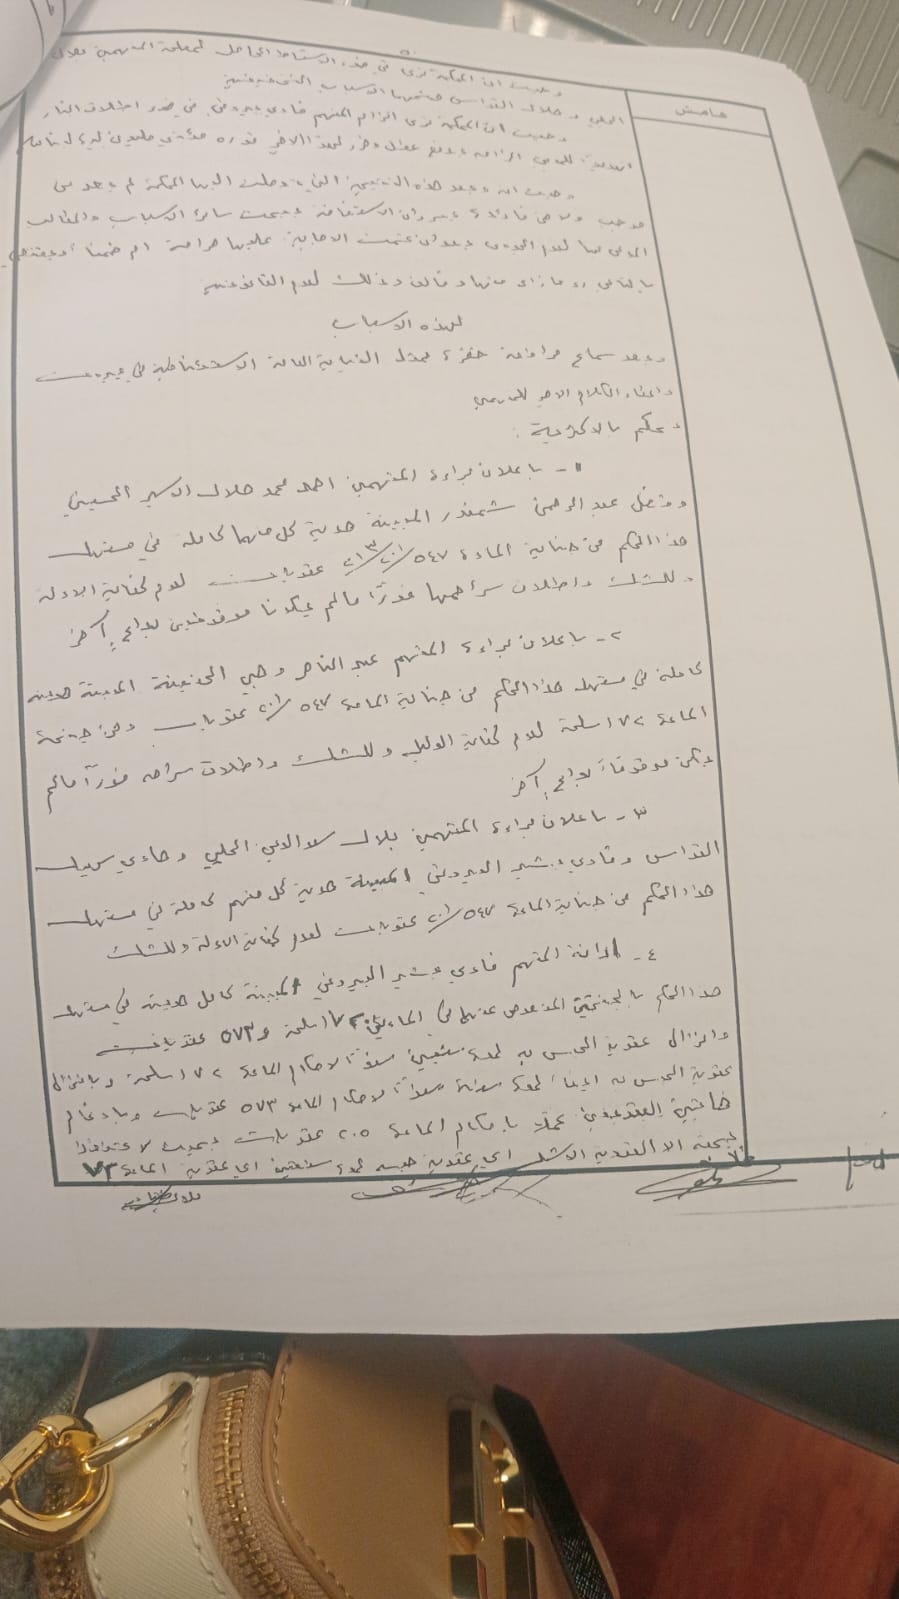 هامش
وحيث ان المحكمة ترى في ضوء الاسقاط الحاصل لمصلحة المتهمين بلال
الحلبي و القواس منحهما الاسباب التخفيفية
وحيث ان المحكمة ترى الزام المتهم فادي بيروتي في ضوء اطلاق النار
للمدعي الزامه بدفع عطل وضرر لهذا الاخير قدره مئتي مليون ليرة لبنانية
وحيث انه وبعد هذه النتيجة التي توصلت اليها المحكمة لم يعد من
موجب ولا من فائدة من الاستفاضة ببحث سائر الاسباب والمطالب
المدلى بها لعدم الجدوى ولأن تمت الاجابة عليها صراحة ام ضمنا ويقتضي
بالتالي رد ما زاد منها و خالف وذلك لعدم القانونية
لهذه الاسباب
وبعد سماع مرافعة حضرة ممثل النيابة العامة الاستئنافية في بيروت
واعطاء الكلام الاخير للمتهمين
تحكم بالاكثرية :
١- باعلان براءة المتهمين احمد محمد هلال الاسير الحسيني
وفضل عبد الرحمن شمندر المبينة هوية كل منهما كاملة في مستهل
هذا الحكم من جناية المادة ٥٤٧/٢٠١/٢١٣ عقوبات لعدم كفاية الادلة
وللشك واطلاق سراحهما فوراً ما لم يكونا موقوفين بداعٍ آخر
٢- باعلان براءة المتهم عبد الناصر وهبي المبينة هويته
كاملة في مستهل هذا الحكم من جناية المادة ٥٤٧/٢٠١ عقوبات ومن جنحة
المادة ٧٢ اسلحة لعدم كفاية الدليل وللشك واطلاق سراحه فوراً ما لم
يكن موقوفاً بداعٍ آخر
٣- باعلان براءة المتهمين بلال سعد الدين الحلبي وهادي سهيل
القواس وفادي بشير البيروتي المبينة هوية كل منهم كاملة في مستهل
هذا الحكم من جناية المادة ٥٤٧/٢٠١ عقوبات لعدم كفاية الادلة وللشك
٤- ادانة المتهم فادي بشير البيروتي المبينة كامل هويته في مستهل
هذا الحكم بالجنحتين المنصوص عنهما في المادتين ٧٢ اسلحة و ٥٧٣ عقوبات
وانزال عقوبة الحبس به لمدة سنتين سنداً لاحكام المادة ٧٢ اسلحة وبانزال
عقوبة الحبس به ايضاً لمدة سنة سنداً لاحكام المادة ٥٧٣ عقوبات وبادغام
هاتين العقوبتين عملاً باحكام المادة ٢٠٥ عقوبات بحيث لا تنفذ
بحقه الا العقوبة الاشد اي عقوبة حبسه لمدة سنتين اي عقوبة المادة ٧٢